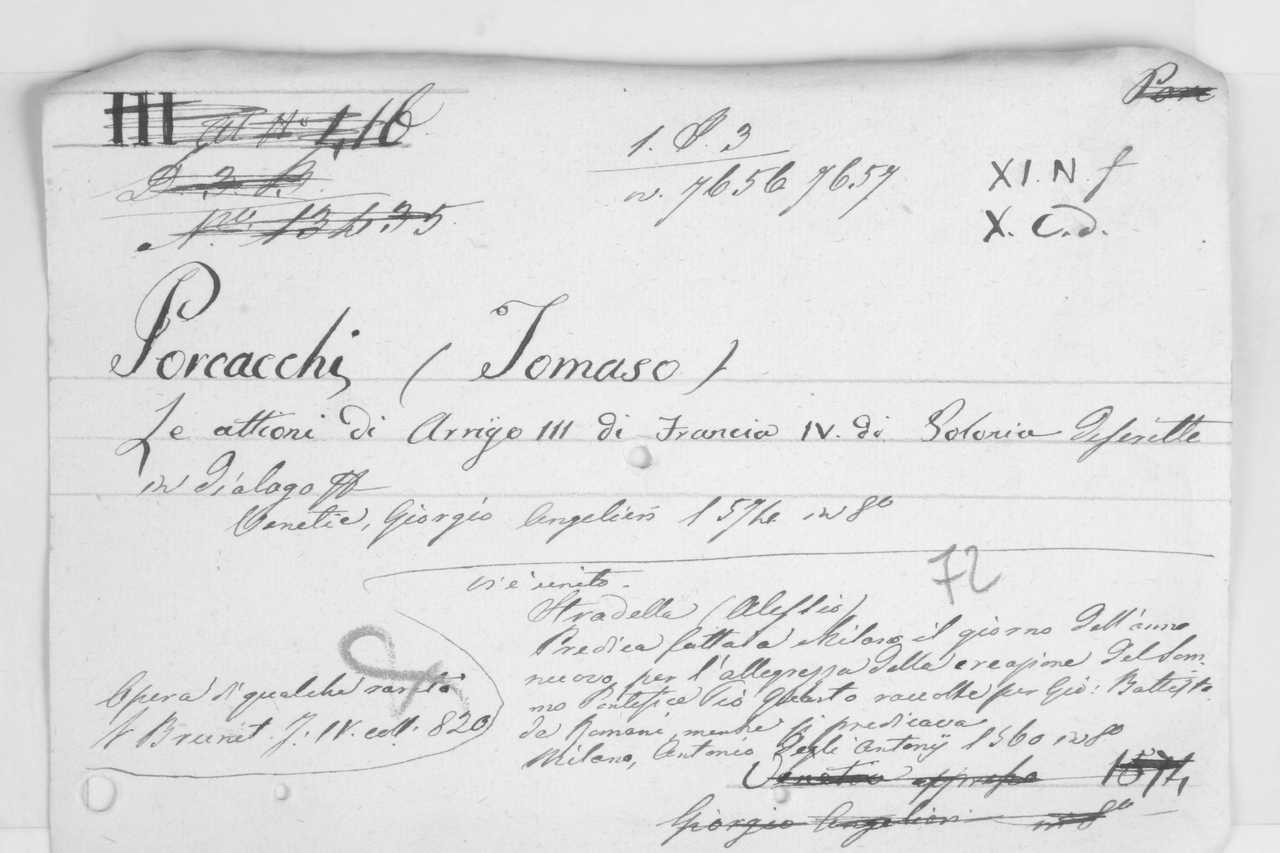 Porc
III III No. 1,16
D. 3. 4.
No. 13435
1. P. 3
n. 7656 7657
XI. N. f
X. C. d.
Porcacchi (Tomaso)
Le attioni di Arrigo III di Francia IV. di Polonia descritte
in dialago
Venetie, Giorgio Angelieri 1574 in 8º
72
vi è unito.
Stradella (Alessio)
Predica fatta a Milano, il giorno dell'anno
nuovo, per l'allegrezza della creazione del Som-
mo Pontefice Pio Quarto raccolte per Gio: Battista
da Romani, mentre si predicava
Milano, Antonio degli Antonij 1560 in 8º
Opera di qualche rarità
V Brunet. T. IV. coll. 820
Venetia appresso 1574,
Giorgio Angelieri in 8º